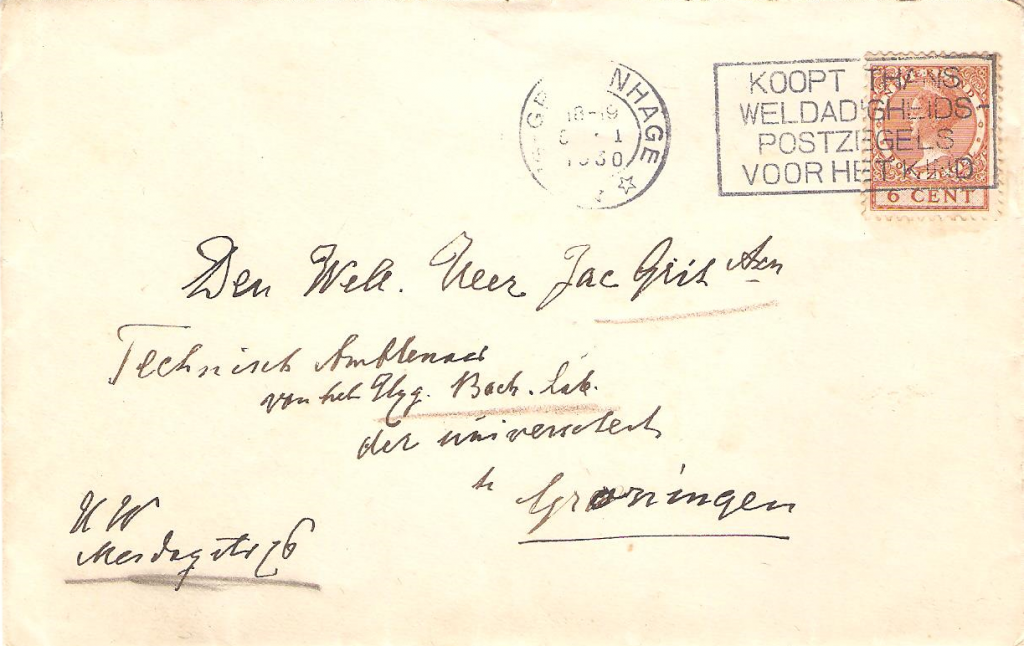 'S-GRAVENHAGE
18-19
1930
KOOPT THANS
WELDADIGHEIDS-
POSTZEGELS
VOOR HET KIND
NEDERLAND
6 CENT
Den Well. Heer Jac Grit Azn
Technisch Ambtenaar
van het Hyg. Bact. Lab.
der universiteit
te Groningen
H W
Mesdagstr 76